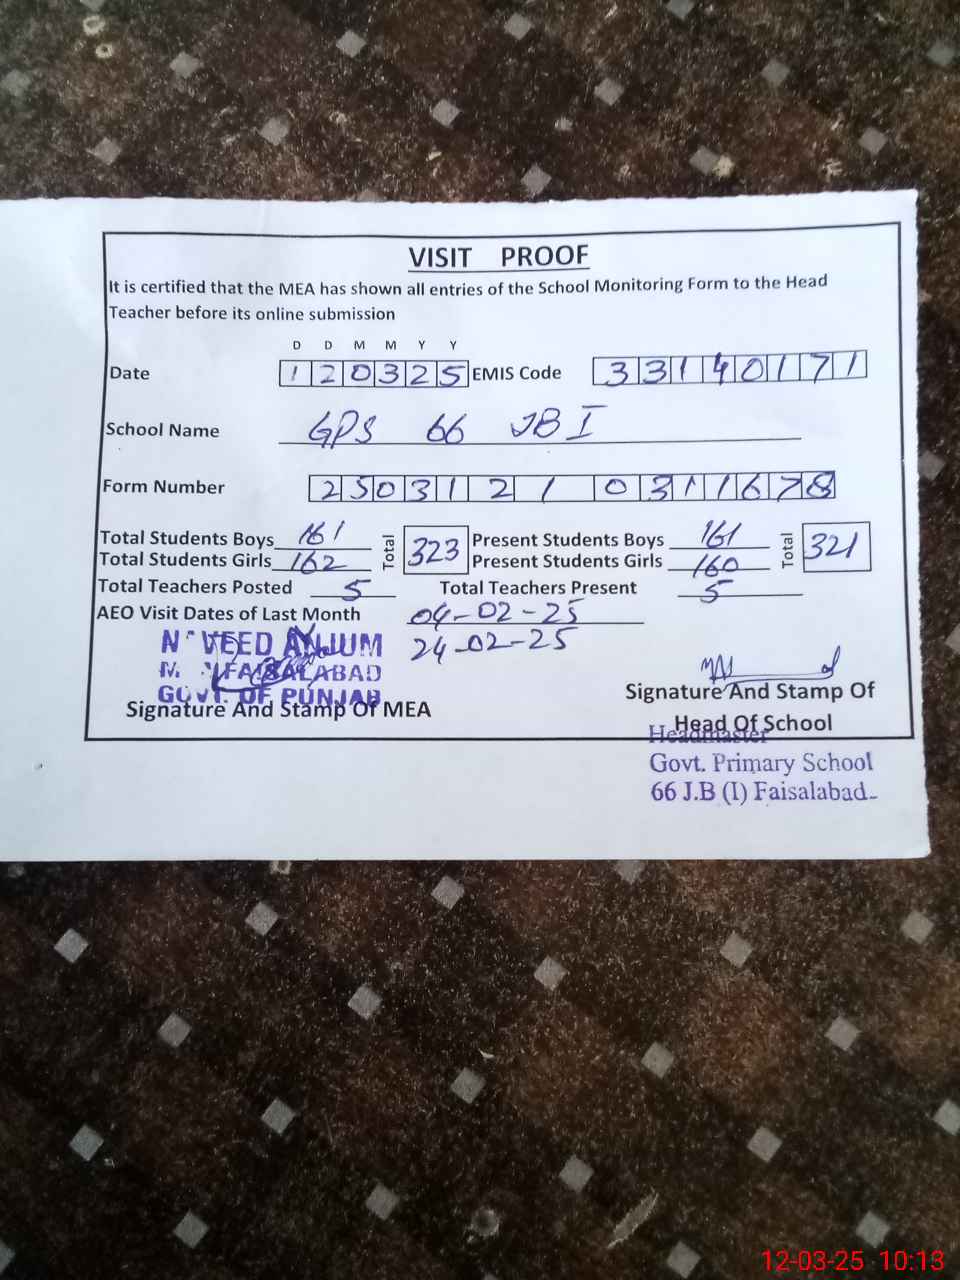 VISIT PROOF
It is certified that the MEA has shown all entries of the School Monitoring Form to the Head
Teacher before its online submission
D D M M Y Y
Date 1 2 0 3 2 5 EMIS Code 3 3 1 4 0 1 7 1
School Name GPS 66 JB I
Form Number 2 5 0 3 1 2 1 0 3 1 1 6 7 8
Total Students Boys 161 Total 323 Present Students Boys 161 Total 321
Total Students Girls 162 Present Students Girls 160
Total Teachers Posted 5 Total Teachers Present 5
AEO Visit Dates of Last Month 04-02-25
24-02-25
VEED ANJUM
FAISALABAD
GOVT. OF PUNJAB
Signature And Stamp Of MEA
Signature And Stamp Of
Head Of School
Headmaster
Govt. Primary School
66 J.B (I) Faisalabad
12-03-25 10:13